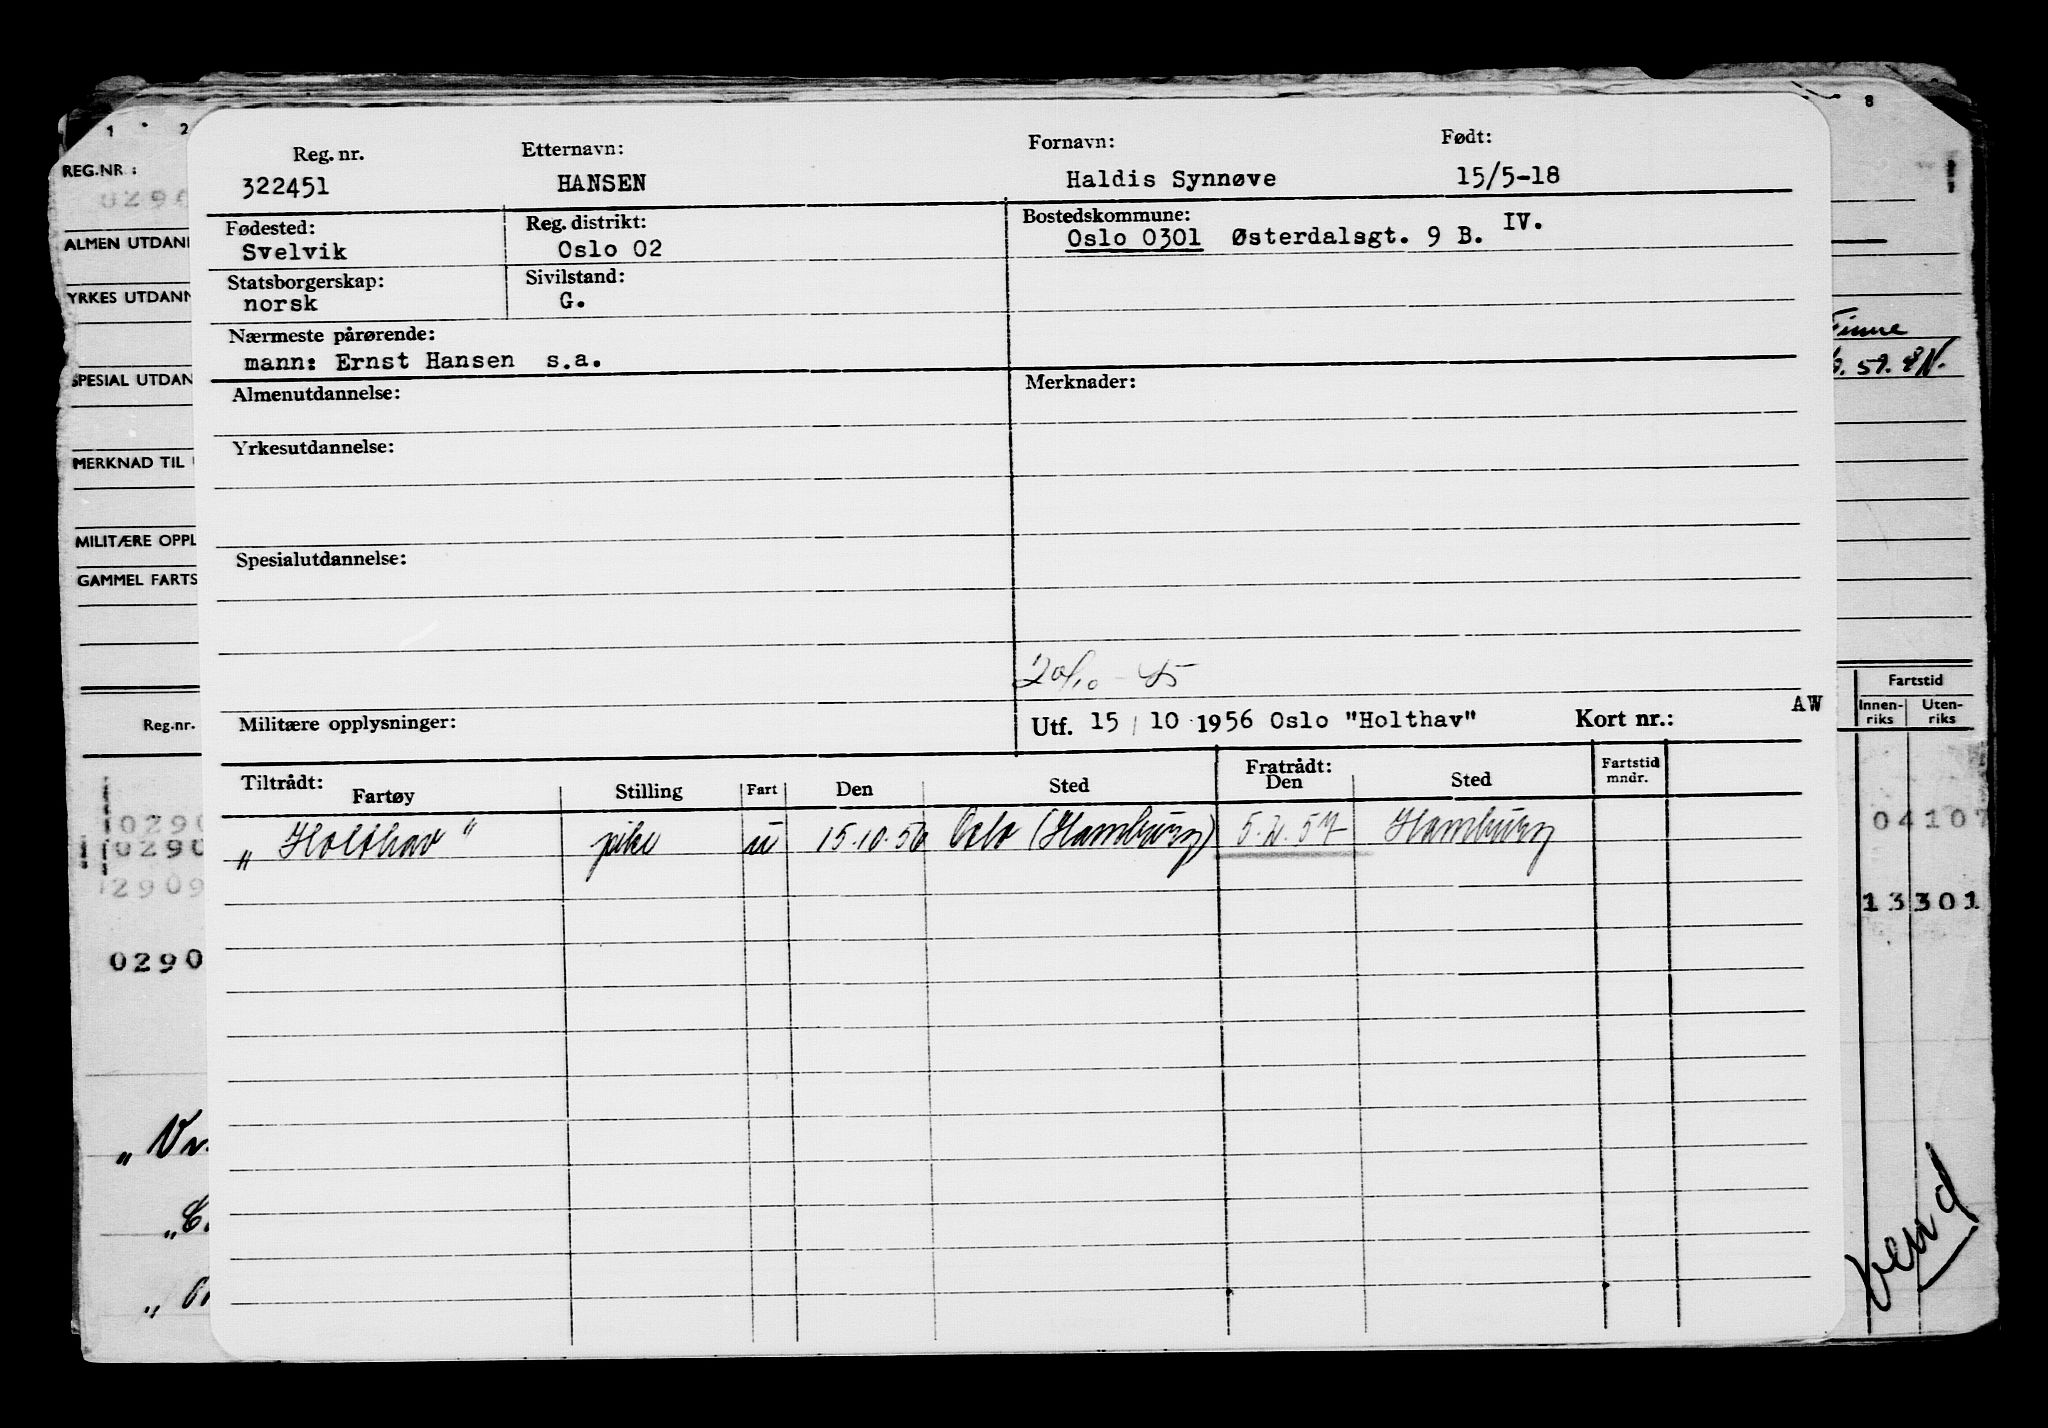 1 2 8
REG.NR.:
0290
ALMEN UTDAN
YRKES UTDANN
SPESIAL UTDAN
MERKNAD TIL
MILITÆRE OPPL
GAMMEL FARTS
Reg.nr.
0290
0290
2909
0290
Reg. nr. Etternavn: Fornavn: Født:
322451 HANSEN Haldis Synnøve 15/5-18
Fødested: Reg. distrikt: Bostedskommune:
Svelvik Oslo 02 Oslo 0301 Østerdalsgt. 9 B. IV.
Statsborgerskap: Sivilstand:
norsk G.
Nærmeste pårørende:
mann: Ernst Hansen s.a.
Almenutdannelse: Merknader:
Yrkesutdannelse:
Spesialutdannelse:
20/10 - 45
Militære opplysninger: Utf. 15/10 1956 Oslo "Holthav" Kort nr.: AW
Tiltrådt: Fratrådt:
Fartøy Stilling Fart Den Sted Den Sted Fartstid mndr.
„Holthav" pike u 15.10.56 Oslo (Hamburg) 5.2.57 Hamburg
Finne
57.
Fartstid
Innen- Uten-
riks riks
04107
13301
Vend